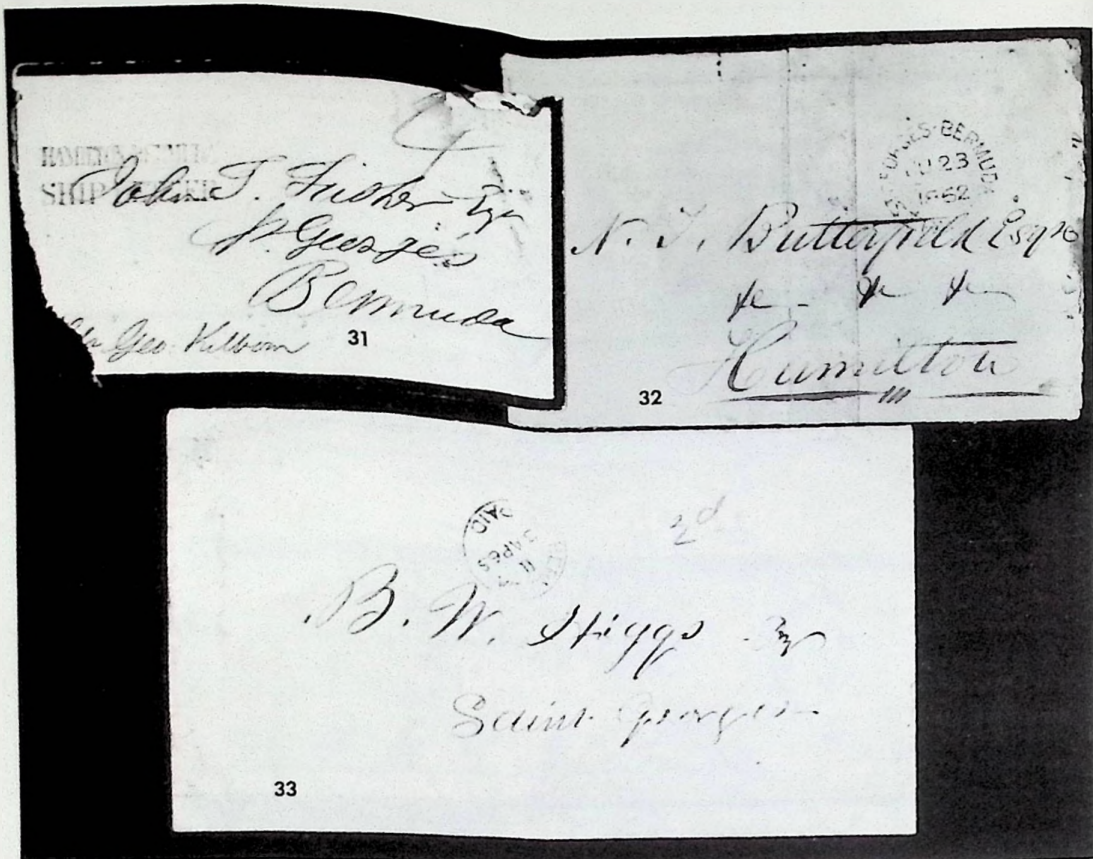 HAMILTON BERMUDA
SHIP LETTER
4
John T. Fisher Esqr
St. Georges
Bermuda
Geo. Kilborn
31
ST GEORGES·BERMUDA
23
1862
N. T. Butterfield Esqre
&c - &c &c
Hamilton
32
PAID
AP 65
2d
B. W. Higgs Esq
Saint Georges
33